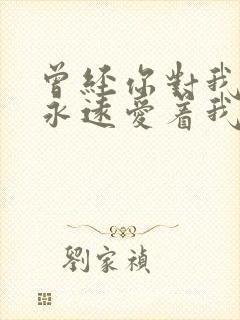 曾經你對我
永遠愛着我
劉家禎